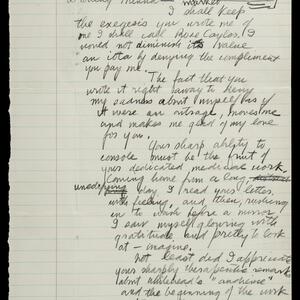 I shall keep
the exegesis you wrote me of
me I shall call Rose Caylor. I
would not diminish its value
an iota by denying the complement
you pay me.
The fact that you
wrote it right away to deny
my sadness about myself as if
it were an outrage, moves me
and makes me glad of my love
for you.
Your sharp ability to
console must be the fruit of
your dedicated medical work.
Coming home from a long,
undying day, I read your letter,
with feeling, and then, rushing
in to wash before a mirror
I saw myself glowing with
gratitude and pretty to look
at — imagine.
Not least did I appreciate
your sharply therapeutic remark
about Whitehead's "audience"
and the beginning of the work